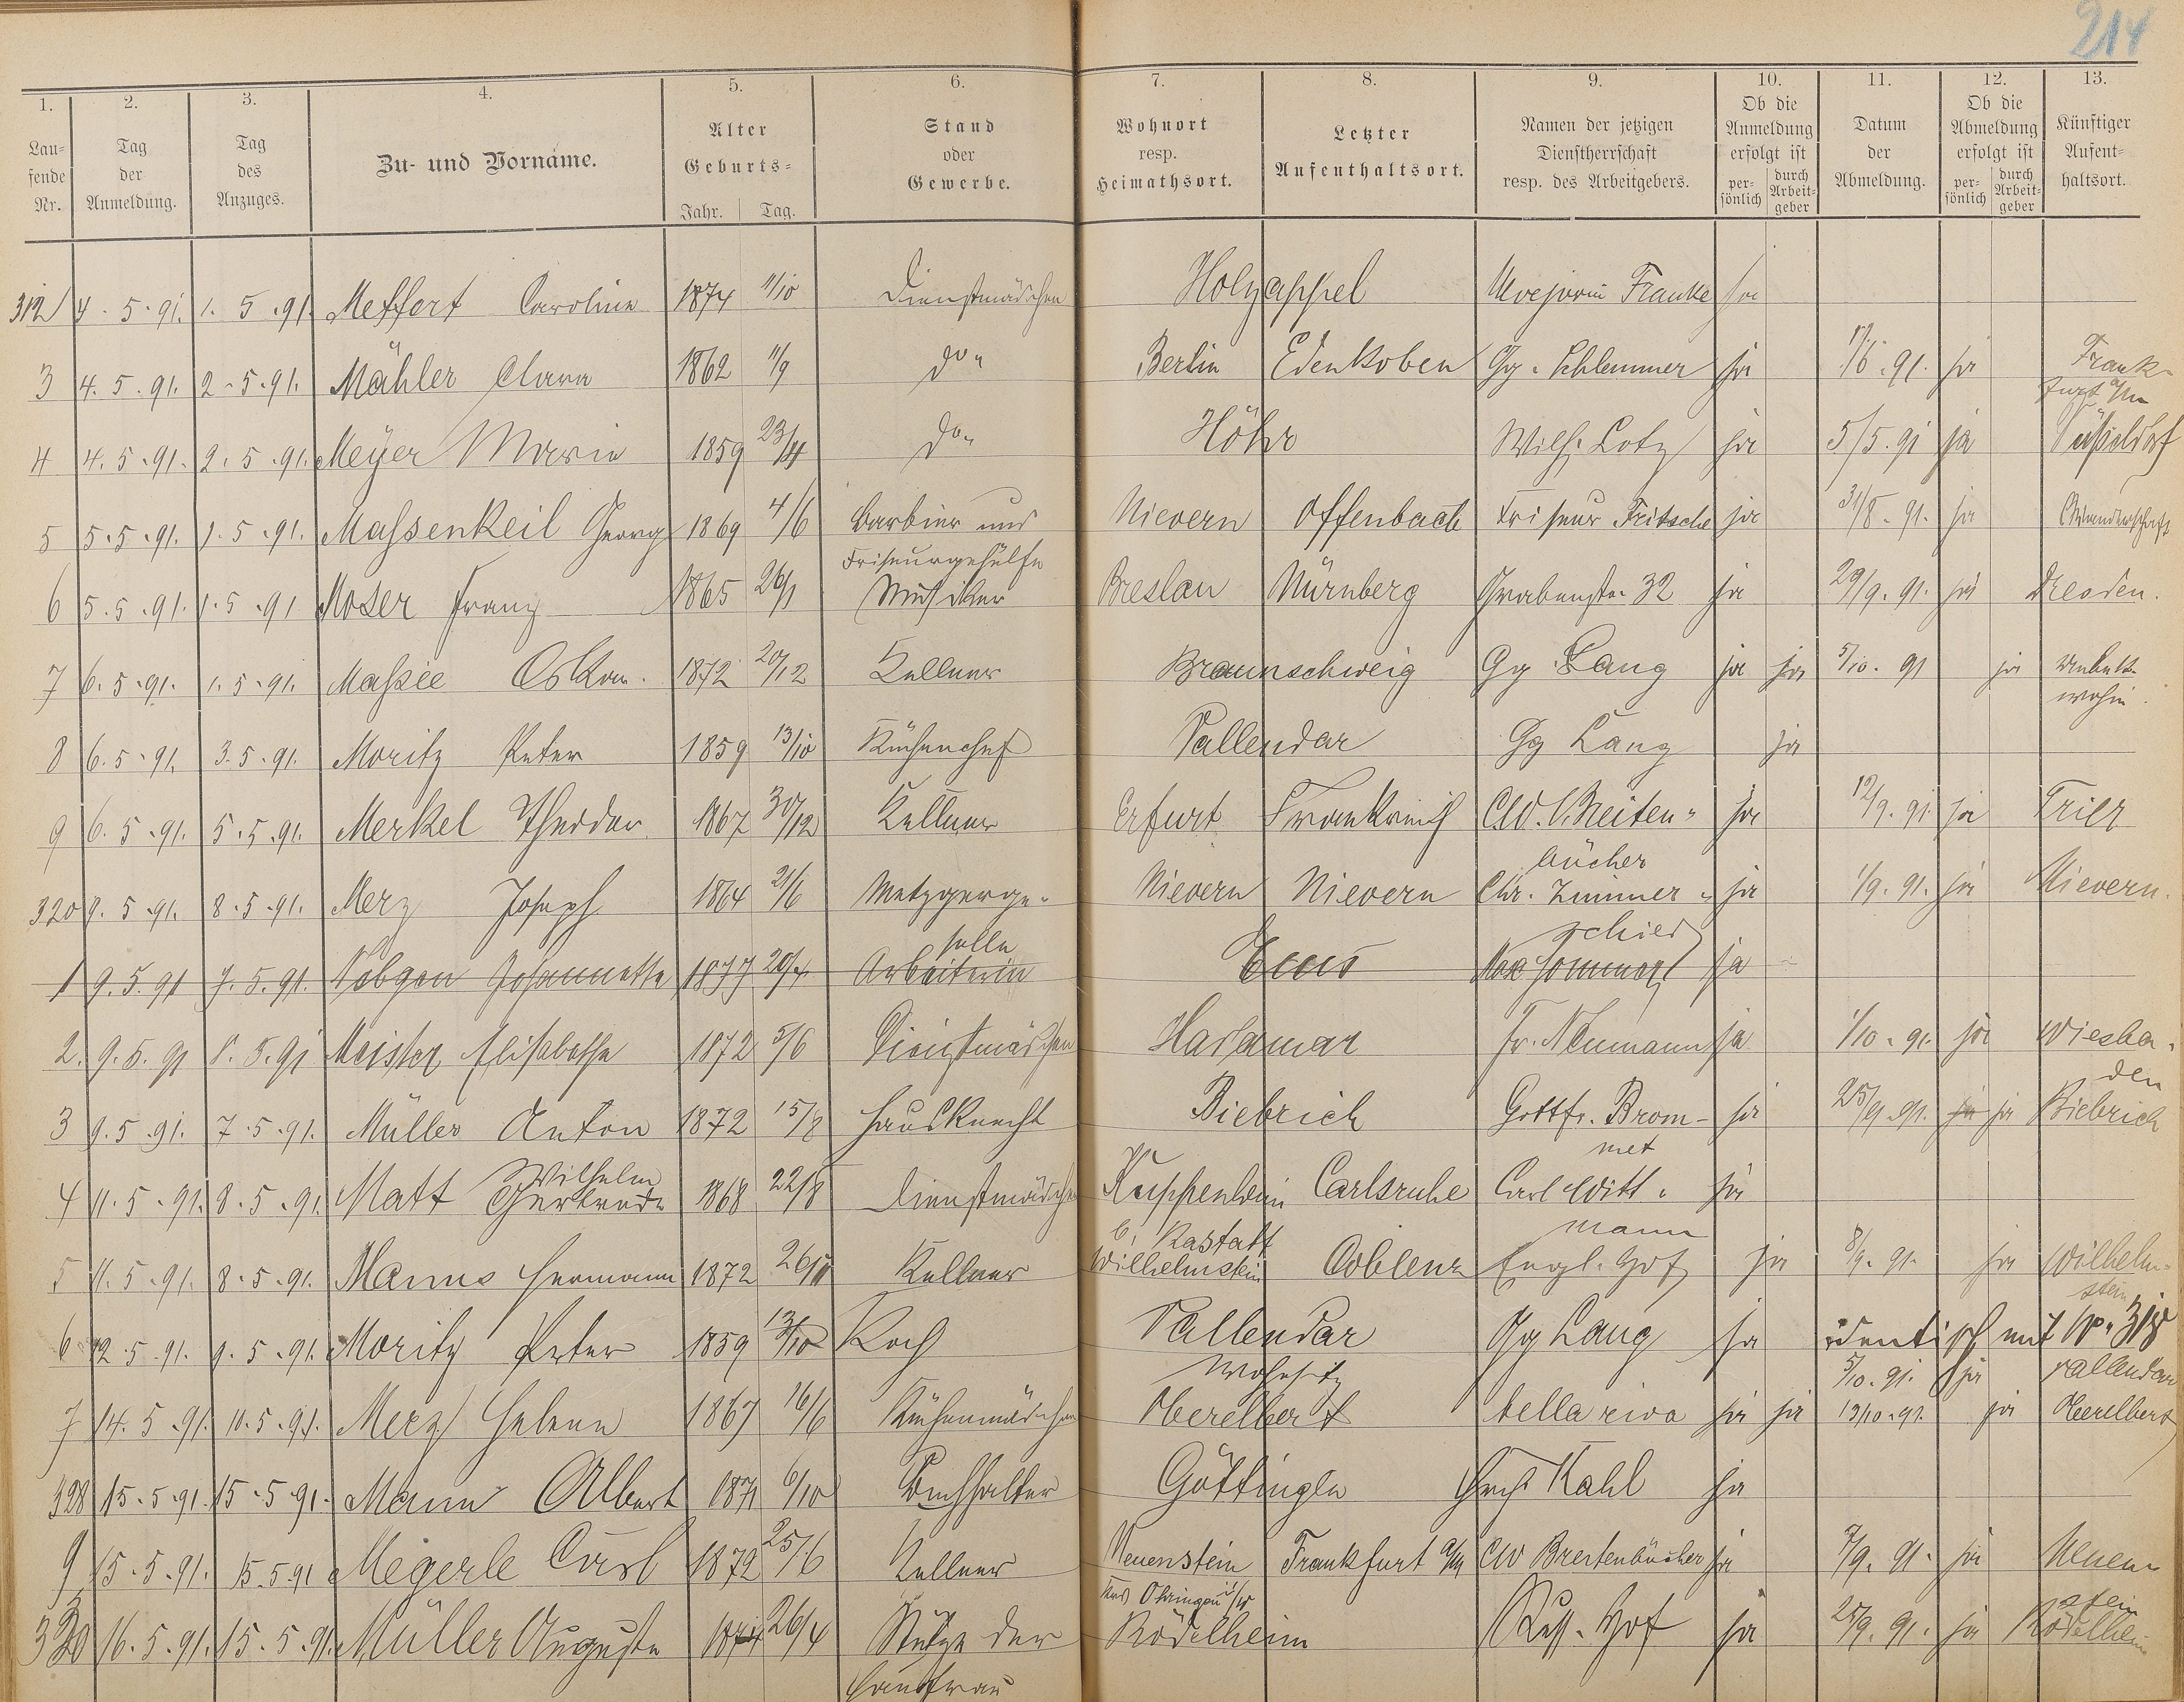 214
1. 2. 3. 4. 5. 6. 7. 8. 9. 10. 11. 12. 13.
Lau-fende Nr. Tag der Anmeldung. Tag des Anzuges. Zu- und Vorname. Alter Geburts- Jahr. Tag. Stand oder Gewerbe. Wohnort resp. Heimathsort. Letzter Aufenthaltsort. Namen der jetzigen Dienstherrschaft resp. des Arbeitgebers. Ob die Anmeldung erfolgt ist per-sönlich durch Arbeit-geber Datum der Abmeldung. Ob die Abmeldung erfolgt ist per-sönlich durch Arbeit-geber Künftiger Aufent-haltsort.
312 4. 5. 91. 1. 5. 91. Meffert Caroline 1874 11/10 Dienstmädchen Holzappel Franke ja
3 4. 5. 91. 2. 5. 91. Mähler Clara 1862 11/9 do. Berlin Edenkoben Gg. Schlemmer ja /6. 91. ja Frank-
furt a/m
4 4. 5. 91. 2. 5. 91. Meÿer Marie 1859 23/11 do. Höhr Wilh. Lotz ja 5/5. 91 ja Düßeldorf
5 5. 5. 91. 1. 5. 91. Maßenkeil Georg 1869 4/6 Barbier und Nievern Offenbach Friseur Fritsche ja 31/8. 91. ja Wanderschaft
Friseurgehülfe
6 5. 5. 91. 1. 5. 91 Moser Franz 1865 26/1 Musiker Breslau Nürnberg Grabenstr. 32 ja 29/9. 91. ja Dresden.
7 6. 5. 91. 1. 5. 91. Maßee Oskar. 1872 20/12 Kellner Braunschweig Gg Lang ja ja 5/10. 91 ja Unbek.
wohin.
8 6. 5. 91. 3. 5. 91. Moritz Peter 1859 13/10 Küchenchef Vallendar Gg Lang ja
9 6. 5. 91. 5. 5. 91. Merkel Theodor 1867 30/12 Kellner Erfurt Frankreich CW. Breiten- ja 12/9. 91 ja Trier
bücher
320 9. 5. 91. 8. 5. 91. Merz Joseph 1864 21/6 Metzgerge- Nievern Nievern Chr. Zimmer- ja 1/9. 91. ja Nievern.
selle schied
1 9. 5. 91 7. 5. 91. Nobgen Johannette 1877 20/4 Arbeiterin Ems Max Sommer ja
2. 9. 5. 91 8. 5. 91 Meister Elisabetha 1872 5/6 Dienstmädchen Hadamar Fr. Neumann ja 1/10. 91. ja Wiesba-
den
3 9. 5. 91. 7. 5. 91. Müller Anton 1872 15/8 Hausknecht Biebrich Gottfr. Brom- ja 25/9. 91. ja ja Biebrich
met
Wilhelm
4 11. 5. 91. 8. 5. 91. Matt Gertrude 1868 22/8 Dienstmädchen Kuppenheim Carlsruhe Carl Witt- ja
b. Rastatt mann
5 11. 5. 91. 8. 5. 91. Manns Hermann 1872 26/11 Kellner Wilhelmstein Coblenz Engl. Hof ja 8/9. 91. ja Wilhelm-
stein
6 12. 5. 91. 9. 5. 91. Moritz Peter 1859 13/10 Koch Vallendar Gg Lang ja identisch mit No. 318
Wohnsitz 5/10. 91. ja Vallendar
7 14. 5. 91. 10. 5. 91. Merz Helene 1867 16/6 Küchenmädchen Oberelbert bella riva ja ja 13/10. 91. ja Oberelbert
328 15. 5. 91. 15. 5. 91. Mann Albert 1871 6/10 Buchhalter Göttingen Kahl ja
9 15. 5. 91. 15. 5. 91 Megerle Carl 1872 25/6 Kellner Neuenstein Frankfurt a/M CW Breitenbücher ja 7/9. 91. ja Neuen-
Öhringen i/W stein
330 16. 5. 91. 15. 5. 91. Müller Auguste 1874 26/4 Stütze der Rödelheim Russ. Hof ja 25/9. 91. ja Rödelheim
Hausfrau